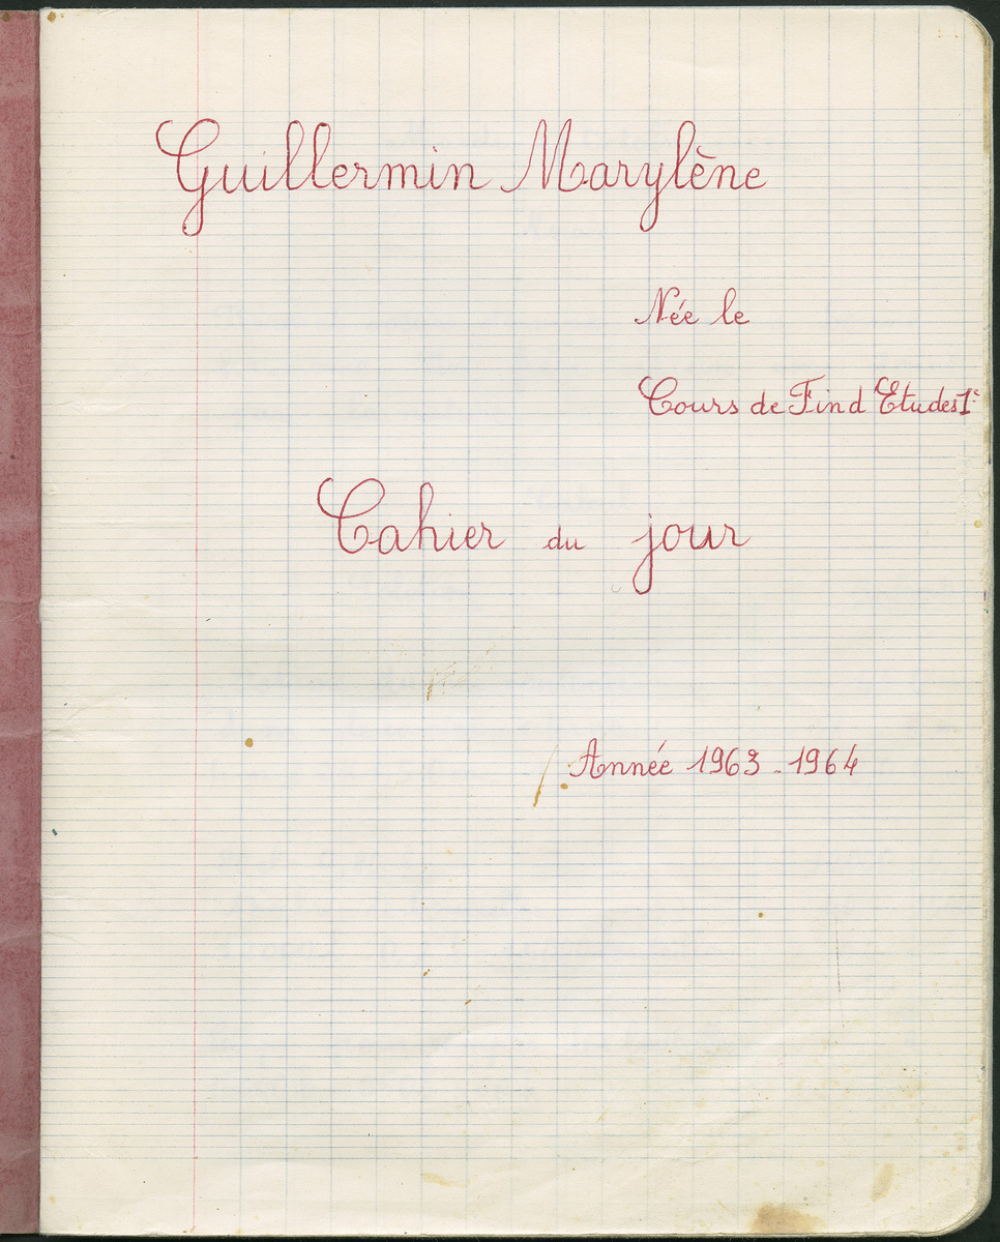 Guillermin Marylène
Née le
Cours de Fin d Etudes 1e
Cahier du jour
Année 1963-1964